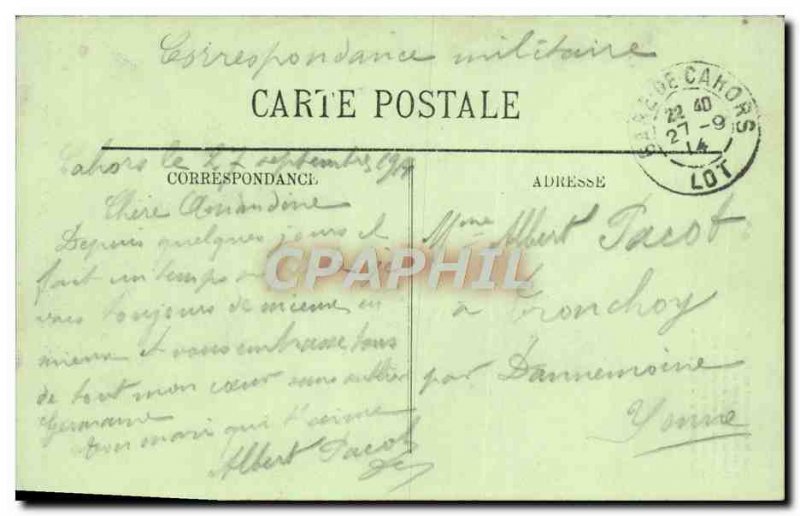 Correspondance militaire
CARTE POSTALE
GARE DE CAHORS
22 40
27-9
14
LOT
Cahors le 27 septembre 1914
CORRESPONDANCE
ADRESSE
Chère Amandine
Depuis quelques jours il
fait un temps
vais toujours de mieux en
mieux et vous embrasse tous
de tout mon cœur sans oublier
Germaine
ton mari qui t'aime
Albert Pacot
Mme Albert Pacot
à Tronchoy
par Dannemoine
Yonne
CPAPHIL